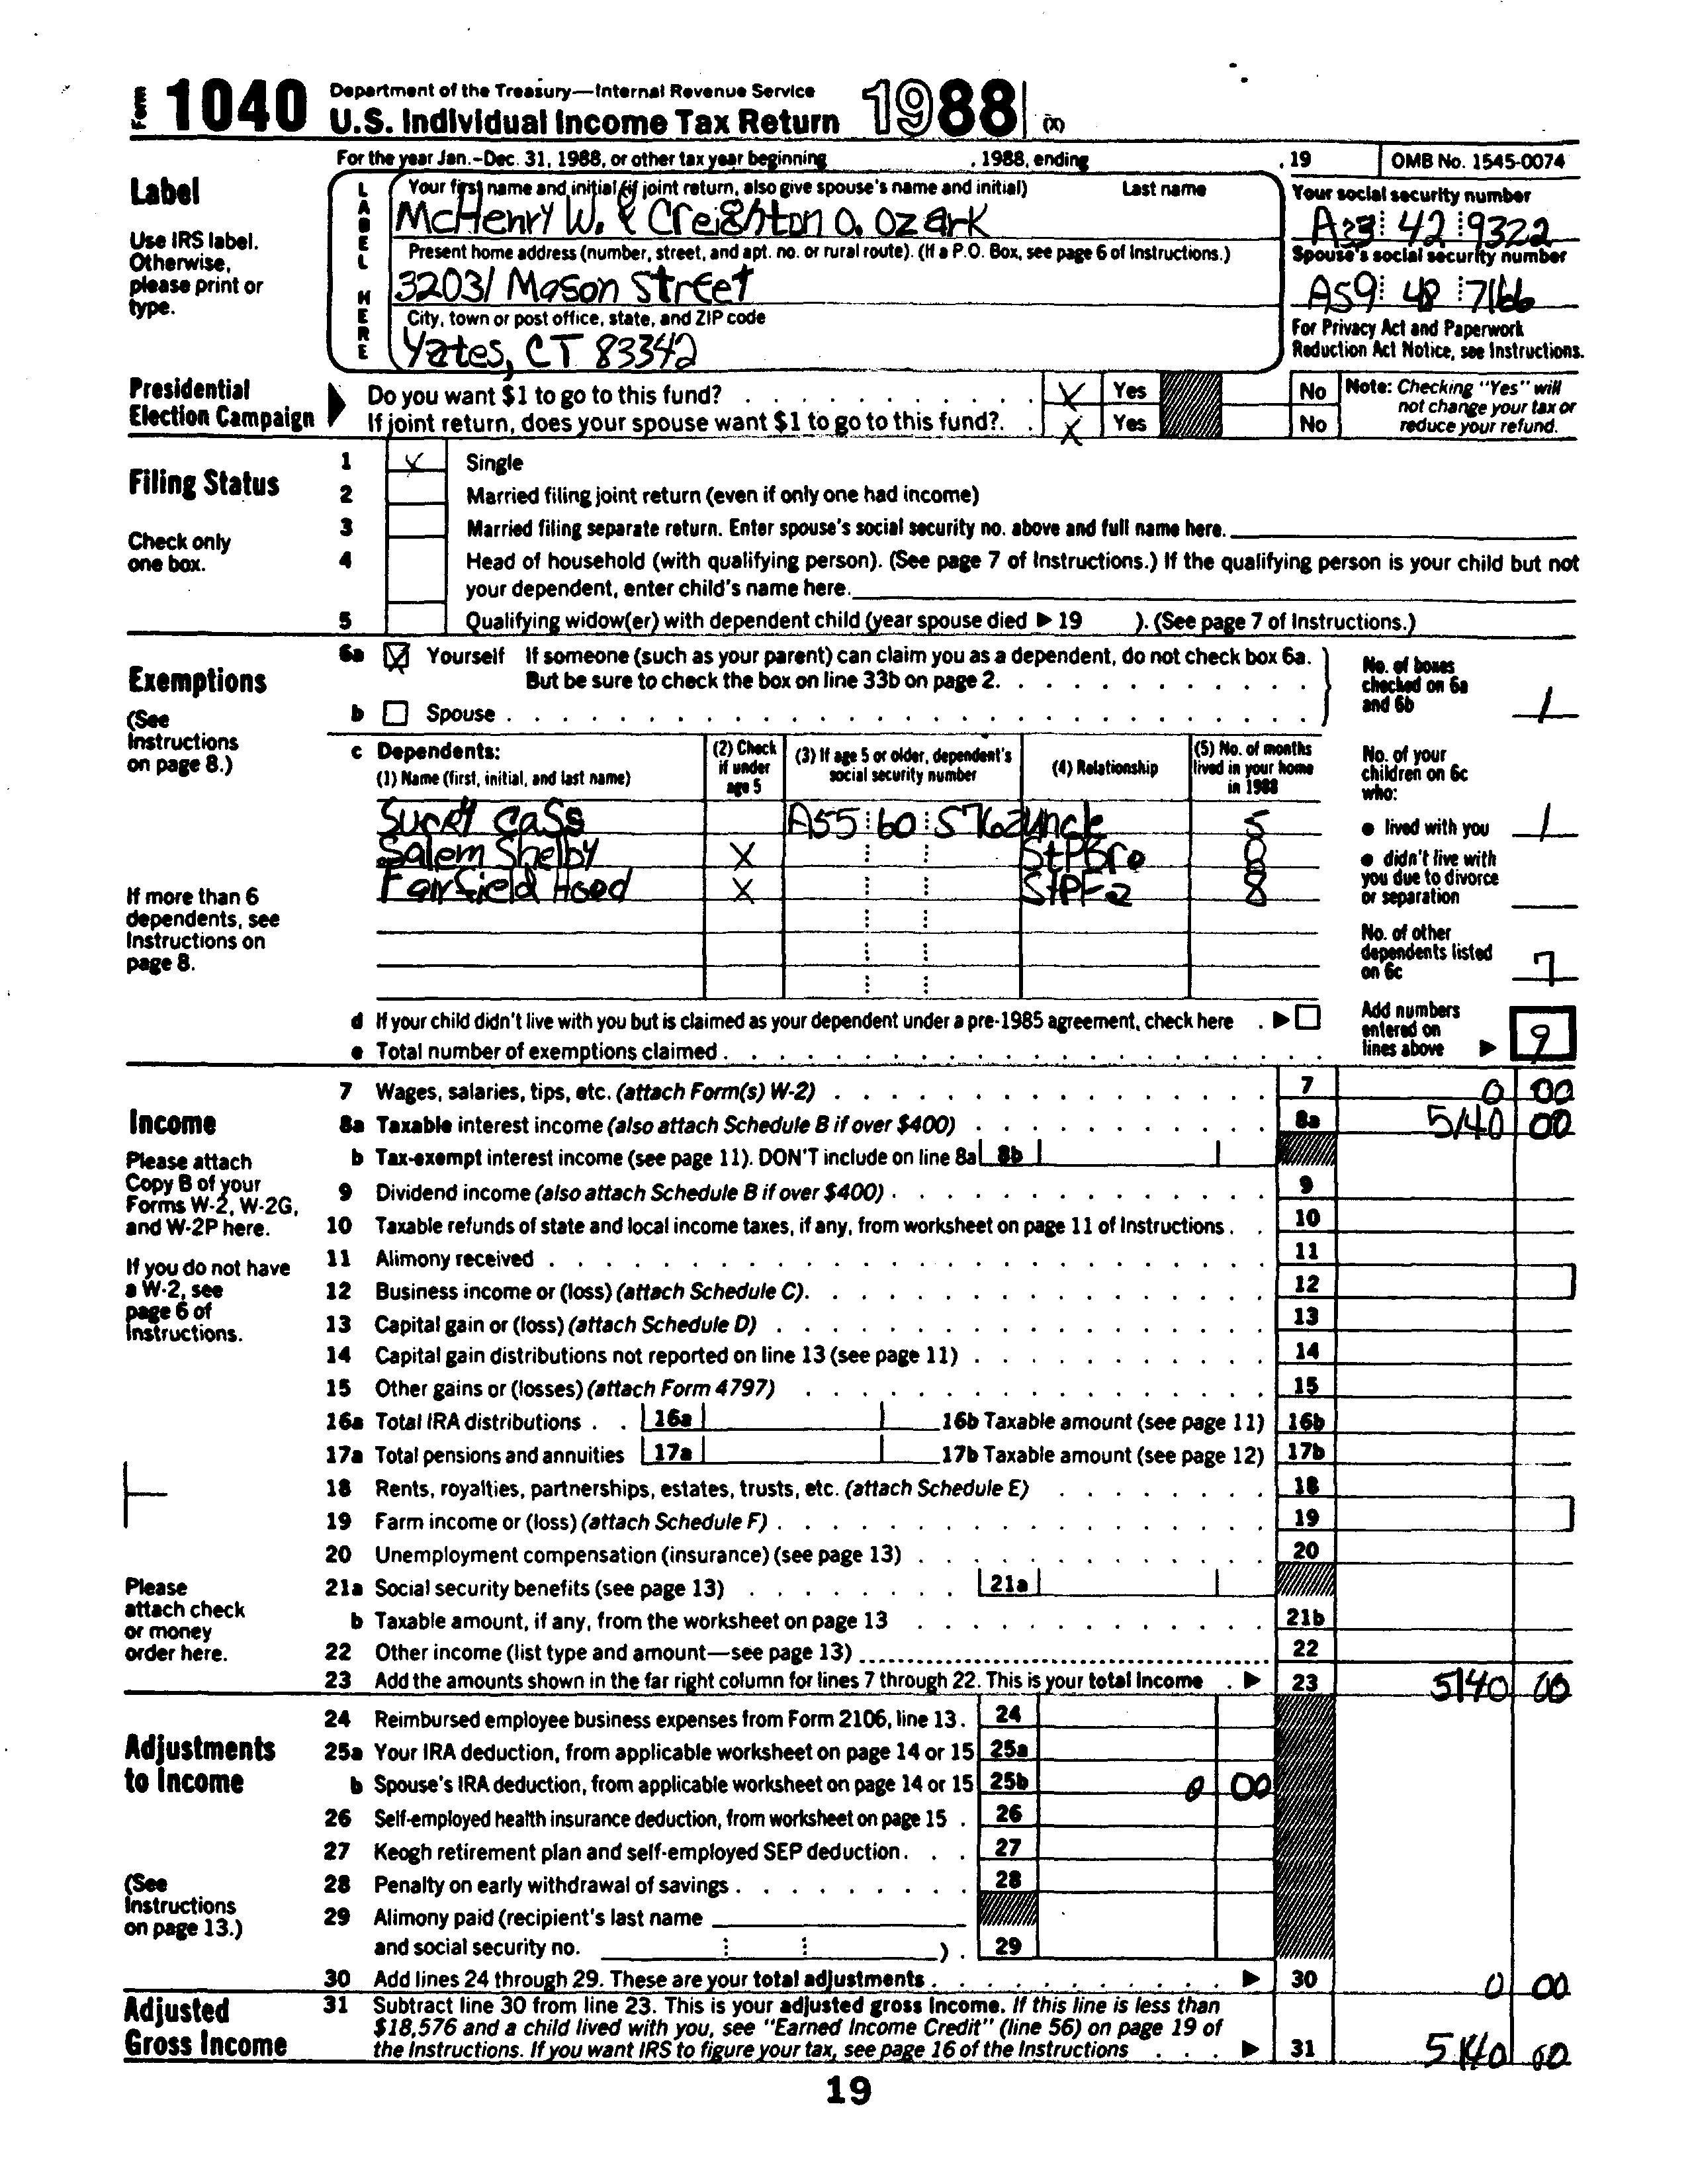 Form 1040 Department of the Treasury—Internal Revenue Service
U.S. Individual Income Tax Return 1988 (X)
For the year Jan.-Dec. 31, 1988, or other tax year beginning , 1988, ending , 19 OMB No. 1545-0074
Label
Use IRS label. Otherwise, please print or type.
LABEL HERE
Your first name and initial (if joint return, also give spouse's name and initial) Last name
McHenry W. & Creighton O. Ozark
Your social security number
A23 42 9322
Present home address (number, street, and apt. no. or rural route). (If a P.O. Box, see page 6 of Instructions.)
32031 Mason Street
Spouse's social security number
A59 48 7166
City, town or post office, state, and ZIP code
Yates, CT 83342
For Privacy Act and Paperwork Reduction Act Notice, see Instructions.
Presidential Election Campaign
Do you want $1 to go to this fund? X Yes No
If joint return, does your spouse want $1 to go to this fund?. X Yes No
Note: Checking "Yes" will not change your tax or reduce your refund.
Filing Status
Check only one box.
1 X Single
2 Married filing joint return (even if only one had income)
3 Married filing separate return. Enter spouse's social security no. above and full name here.
4 Head of household (with qualifying person). (See page 7 of Instructions.) If the qualifying person is your child but not
your dependent, enter child's name here.
5 Qualifying widow(er) with dependent child (year spouse died ▶ 19 ). (See page 7 of Instructions.)
Exemptions
(See Instructions on page 8.)
6a X Yourself If someone (such as your parent) can claim you as a dependent, do not check box 6a.
But be sure to check the box on line 33b on page 2.
b Spouse
No. of boxes checked on 6a and 6b 1
c Dependents:
(1) Name (first, initial, and last name) (2) Check if under age 5 (3) If age 5 or older, dependent's social security number (4) Relationship (5) No. of months lived in your home in 1988
Surry Cass A55 60 5762 uncle 5
Salem Shelby X StPBro 8
Fairfield Hood X StPFa 8
No. of your children on 6c who:
● lived with you 1
● didn't live with you due to divorce or separation
No. of other dependents listed on 6c 7
If more than 6 dependents, see Instructions on page 8.
d If your child didn't live with you but is claimed as your dependent under a pre-1985 agreement, check here . ▶
e Total number of exemptions claimed
Add numbers entered on lines above ▶ 9
Income
Please attach Copy B of your Forms W-2, W-2G, and W-2P here.
If you do not have a W-2, see page 6 of Instructions.
Please attach check or money order here.
7 Wages, salaries, tips, etc. (attach Form(s) W-2) 7 0 00
8a Taxable interest income (also attach Schedule B if over $400) 8a 5140 00
b Tax-exempt interest income (see page 11). DON'T include on line 8a 8b
9 Dividend income (also attach Schedule B if over $400) 9
10 Taxable refunds of state and local income taxes, if any, from worksheet on page 11 of Instructions 10
11 Alimony received 11
12 Business income or (loss) (attach Schedule C). 12
13 Capital gain or (loss) (attach Schedule D) 13
14 Capital gain distributions not reported on line 13 (see page 11) 14
15 Other gains or (losses) (attach Form 4797) 15
16a Total IRA distributions 16a 16b Taxable amount (see page 11) 16b
17a Total pensions and annuities 17a 17b Taxable amount (see page 12) 17b
18 Rents, royalties, partnerships, estates, trusts, etc. (attach Schedule E) 18
19 Farm income or (loss) (attach Schedule F) 19
20 Unemployment compensation (insurance) (see page 13) 20
21a Social security benefits (see page 13) 21a
b Taxable amount, if any, from the worksheet on page 13 21b
22 Other income (list type and amount—see page 13) 22
23 Add the amounts shown in the far right column for lines 7 through 22. This is your total income ▶ 23 5140 00
Adjustments to Income
(See Instructions on page 13.)
24 Reimbursed employee business expenses from Form 2106, line 13. 24
25a Your IRA deduction, from applicable worksheet on page 14 or 15 25a
b Spouse's IRA deduction, from applicable worksheet on page 14 or 15 25b 0 00
26 Self-employed health insurance deduction, from worksheet on page 15 26
27 Keogh retirement plan and self-employed SEP deduction 27
28 Penalty on early withdrawal of savings 28
29 Alimony paid (recipient's last name
and social security no. ) 29
30 Add lines 24 through 29. These are your total adjustments ▶ 30 0 00
Adjusted Gross Income
31 Subtract line 30 from line 23. This is your adjusted gross income. If this line is less than
$18,576 and a child lived with you, see "Earned Income Credit" (line 56) on page 19 of
the Instructions. If you want IRS to figure your tax, see page 16 of the Instructions ▶ 31 5140 00
19